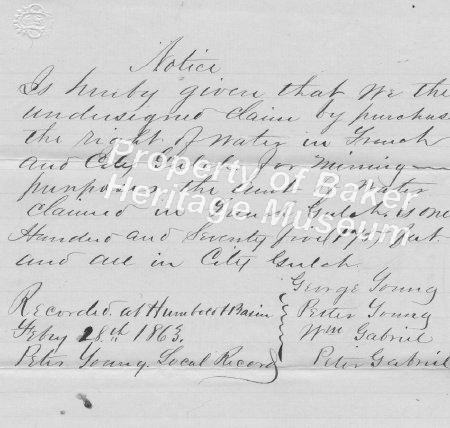 Notice
Is hereby given that We the
undersigned claim by purchase
the right of Water in French
and City Gulch for Mining
purposes the amt Water
claimed in Gulch is one
Hundred and Seventy five
and all in City Gulch.
George Young
Peter Young
Wm Gabriel
Peter Gabriel
Recorded at Humboldt Basin
Feby 28th 1863.
Peter Young. Local Record
Property of Baker
Heritage Museum